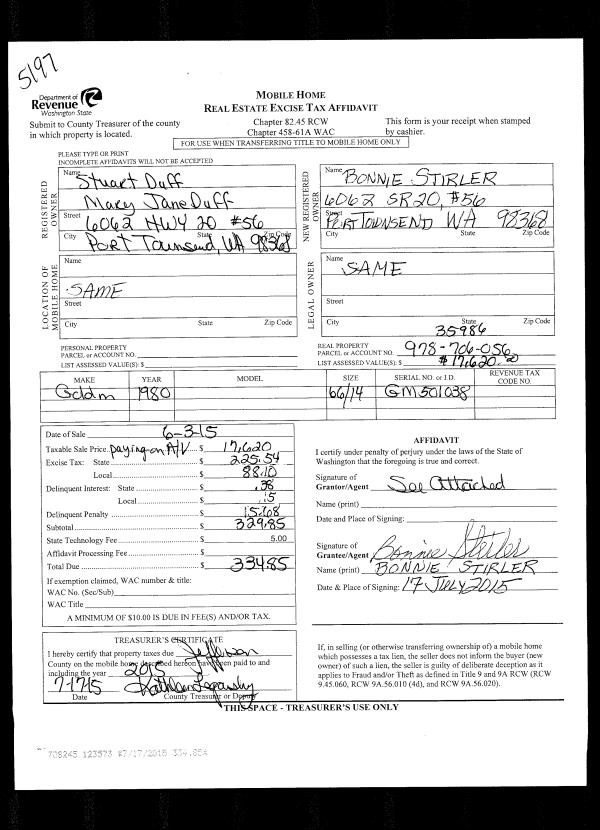 5197
Department of
Revenue
Washington State
MOBILE HOME
REAL ESTATE EXCISE TAX AFFIDAVIT
Submit to County Treasurer of the county
in which property is located.
Chapter 82.45 RCW
Chapter 458-61A WAC
This form is your receipt when stamped
by cashier.
FOR USE WHEN TRANSFERRING TITLE TO MOBILE HOME ONLY
PLEASE TYPE OR PRINT
INCOMPLETE AFFIDAVITS WILL NOT BE ACCEPTED
REGISTERED OWNER
Name Stuart Duff
Mary Jane Duff
Street 6062 HWY 20 #56
City State Zip Code
Port Townsend, WA 98368
NEW REGISTERED OWNER
Name BONNIE STIRLER
6062 SR 20, #56
Street PORT TOWNSEND WA 98368
City State Zip Code
LOCATION OF MOBILE HOME
Name
SAME
Street
City State Zip Code
LEGAL OWNER
Name
SAME
Street
City State Zip Code
35986
PERSONAL PROPERTY
PARCEL or ACCOUNT NO.
LIST ASSESSED VALUE(S): $
REAL PROPERTY
PARCEL or ACCOUNT NO. 978-706-056
LIST ASSESSED VALUE(S): $ #17,620.00
MAKE YEAR MODEL SIZE SERIAL NO. or I.D. REVENUE TAX CODE NO.
Goldm 1980 66/14 GM501038
Date of Sale 6-3-15
Taxable Sale Price paying on A/V $ 17,620
Excise Tax: State $ 225.54
Local $ 88.10
Delinquent Interest: State $ .38
Local $ .15
Delinquent Penalty $ 15.68
Subtotal $ 329.85
State Technology Fee $ 5.00
Affidavit Processing Fee $
Total Due $ 334.85
If exemption claimed, WAC number & title:
WAC No. (Sec/Sub)
WAC Title
A MINIMUM OF $10.00 IS DUE IN FEE(S) AND/OR TAX.
AFFIDAVIT
I certify under penalty of perjury under the laws of the State of
Washington that the foregoing is true and correct.
Signature of
Grantor/Agent See Attached
Name (print)
Date and Place of Signing:
Signature of
Grantee/Agent Bonnie Stirler
Name (print) BONNIE STIRLER
Date & Place of Signing: 17 JULY 2015
TREASURER'S CERTIFICATE
I hereby certify that property taxes due Jefferson
County on the mobile home described hereon have been paid to and
including the year 2015
7-17-15
Date County Treasurer or Deputy
If, in selling (or otherwise transferring ownership of) a mobile home
which possesses a tax lien, the seller does not inform the buyer (new
owner) of such a lien, the seller is guilty of deliberate deception as it
applies to Fraud and/or Theft as defined in Title 9 and 9A RCW (RCW
9.45.060, RCW 9A.56.010 (4d), and RCW 9A.56.020).
THIS SPACE - TREASURER'S USE ONLY